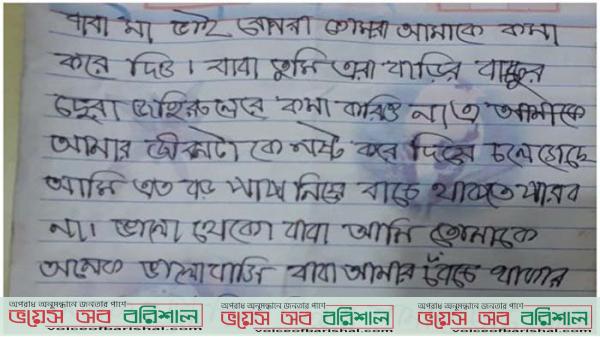 বাবা মা ভাই তোমরা আমাকে ক্ষমা
করে দিও। বাবা তুমি এরা বাড়ির
ক্ষমা করিও না এ আমাকে
আমার জীবনটা কে নষ্ট করে দিয়ে চলেগেছে
আমি এত বড় পাপ নিয়ে বাচে থাকতে পারব
না। ভালো থেকো বাবা আমি তোমাকে
অনেক ভালোবাসি বাবা আমার বেঁচে থাকার
অপরাধ অনুসন্ধানে জনতার পাশে অপরাধ অনুসন্ধানে জনতার পাশে অপরাধ অনুসন্ধানে জনতার পাশে
ভয়েস অব বরিশাল ভয়েস অব বরিশাল ভয়েস অব বরিশাল
voiceofbarishal.com voiceofbarishal.com voiceofbarishal.com